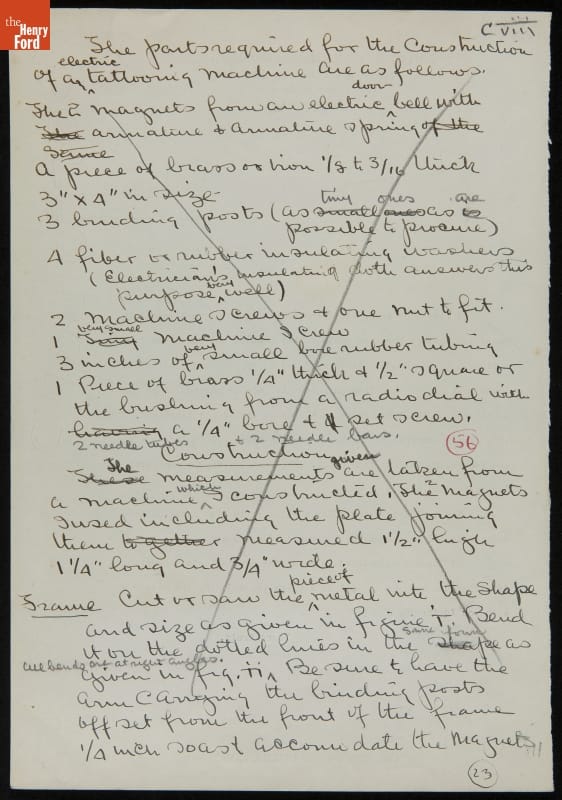 the
Henry
Ford
C VIII
The parts required for the Construction
electric
of an tattooing machine are as follows.
door
The 2 magnets from an electric bell with
The armature & armature spring of the
same
A piece of brass or iron 1/8 to 3/16 thick
3" x 4" in size
tiny ones are
3 binding posts (as small ones as is
possible to procure)
4 fiber or rubber insulating washers
(Electrician's insulating cloth answers this
very
purpose well)
2 Machine screws & one nut to fit.
very small
1 Machine Screw
very
3 inches of small bore rubber tubing
1 Piece of brass 1/4" thick & 1/2" square or
the bushing from a radio dial with
having a 1/4" bore & set screw.
2 needle tubes & 2 needle bars.
56
Construction
The given
These measurements are taken from
which 2
a machine I constructed. The magnets
I used including the plate joining
them together measured 1 1/2" high
1 1/4" long and 3/4" wide.
piece of
Frame Cut or saw the metal into the shape
and size as given in figure I. Bend
same form
it on the dotted lines in the shape as
all bends are at right angles.
given in fig. II. Be sure to have the
arm carrying the binding posts
offset from the front of the frame
1/4 inch so as to accomodate the magnets
23